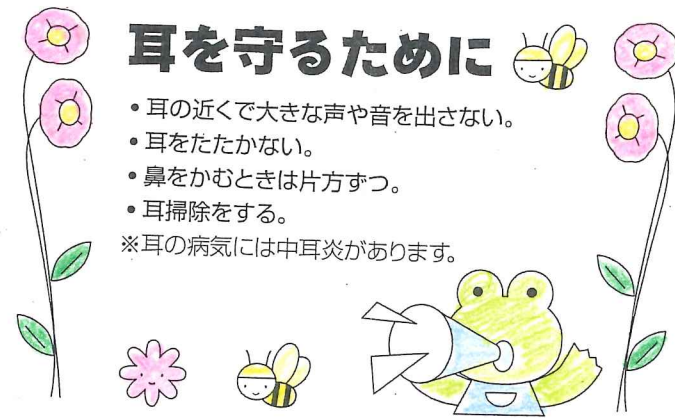 耳を守るために
• 耳の近くで大きな声や音を出さない。
• 耳をたたかない。
• 鼻をかむときは片方ずつ。
• 耳掃除をする。
※耳の病気には中耳炎があります。